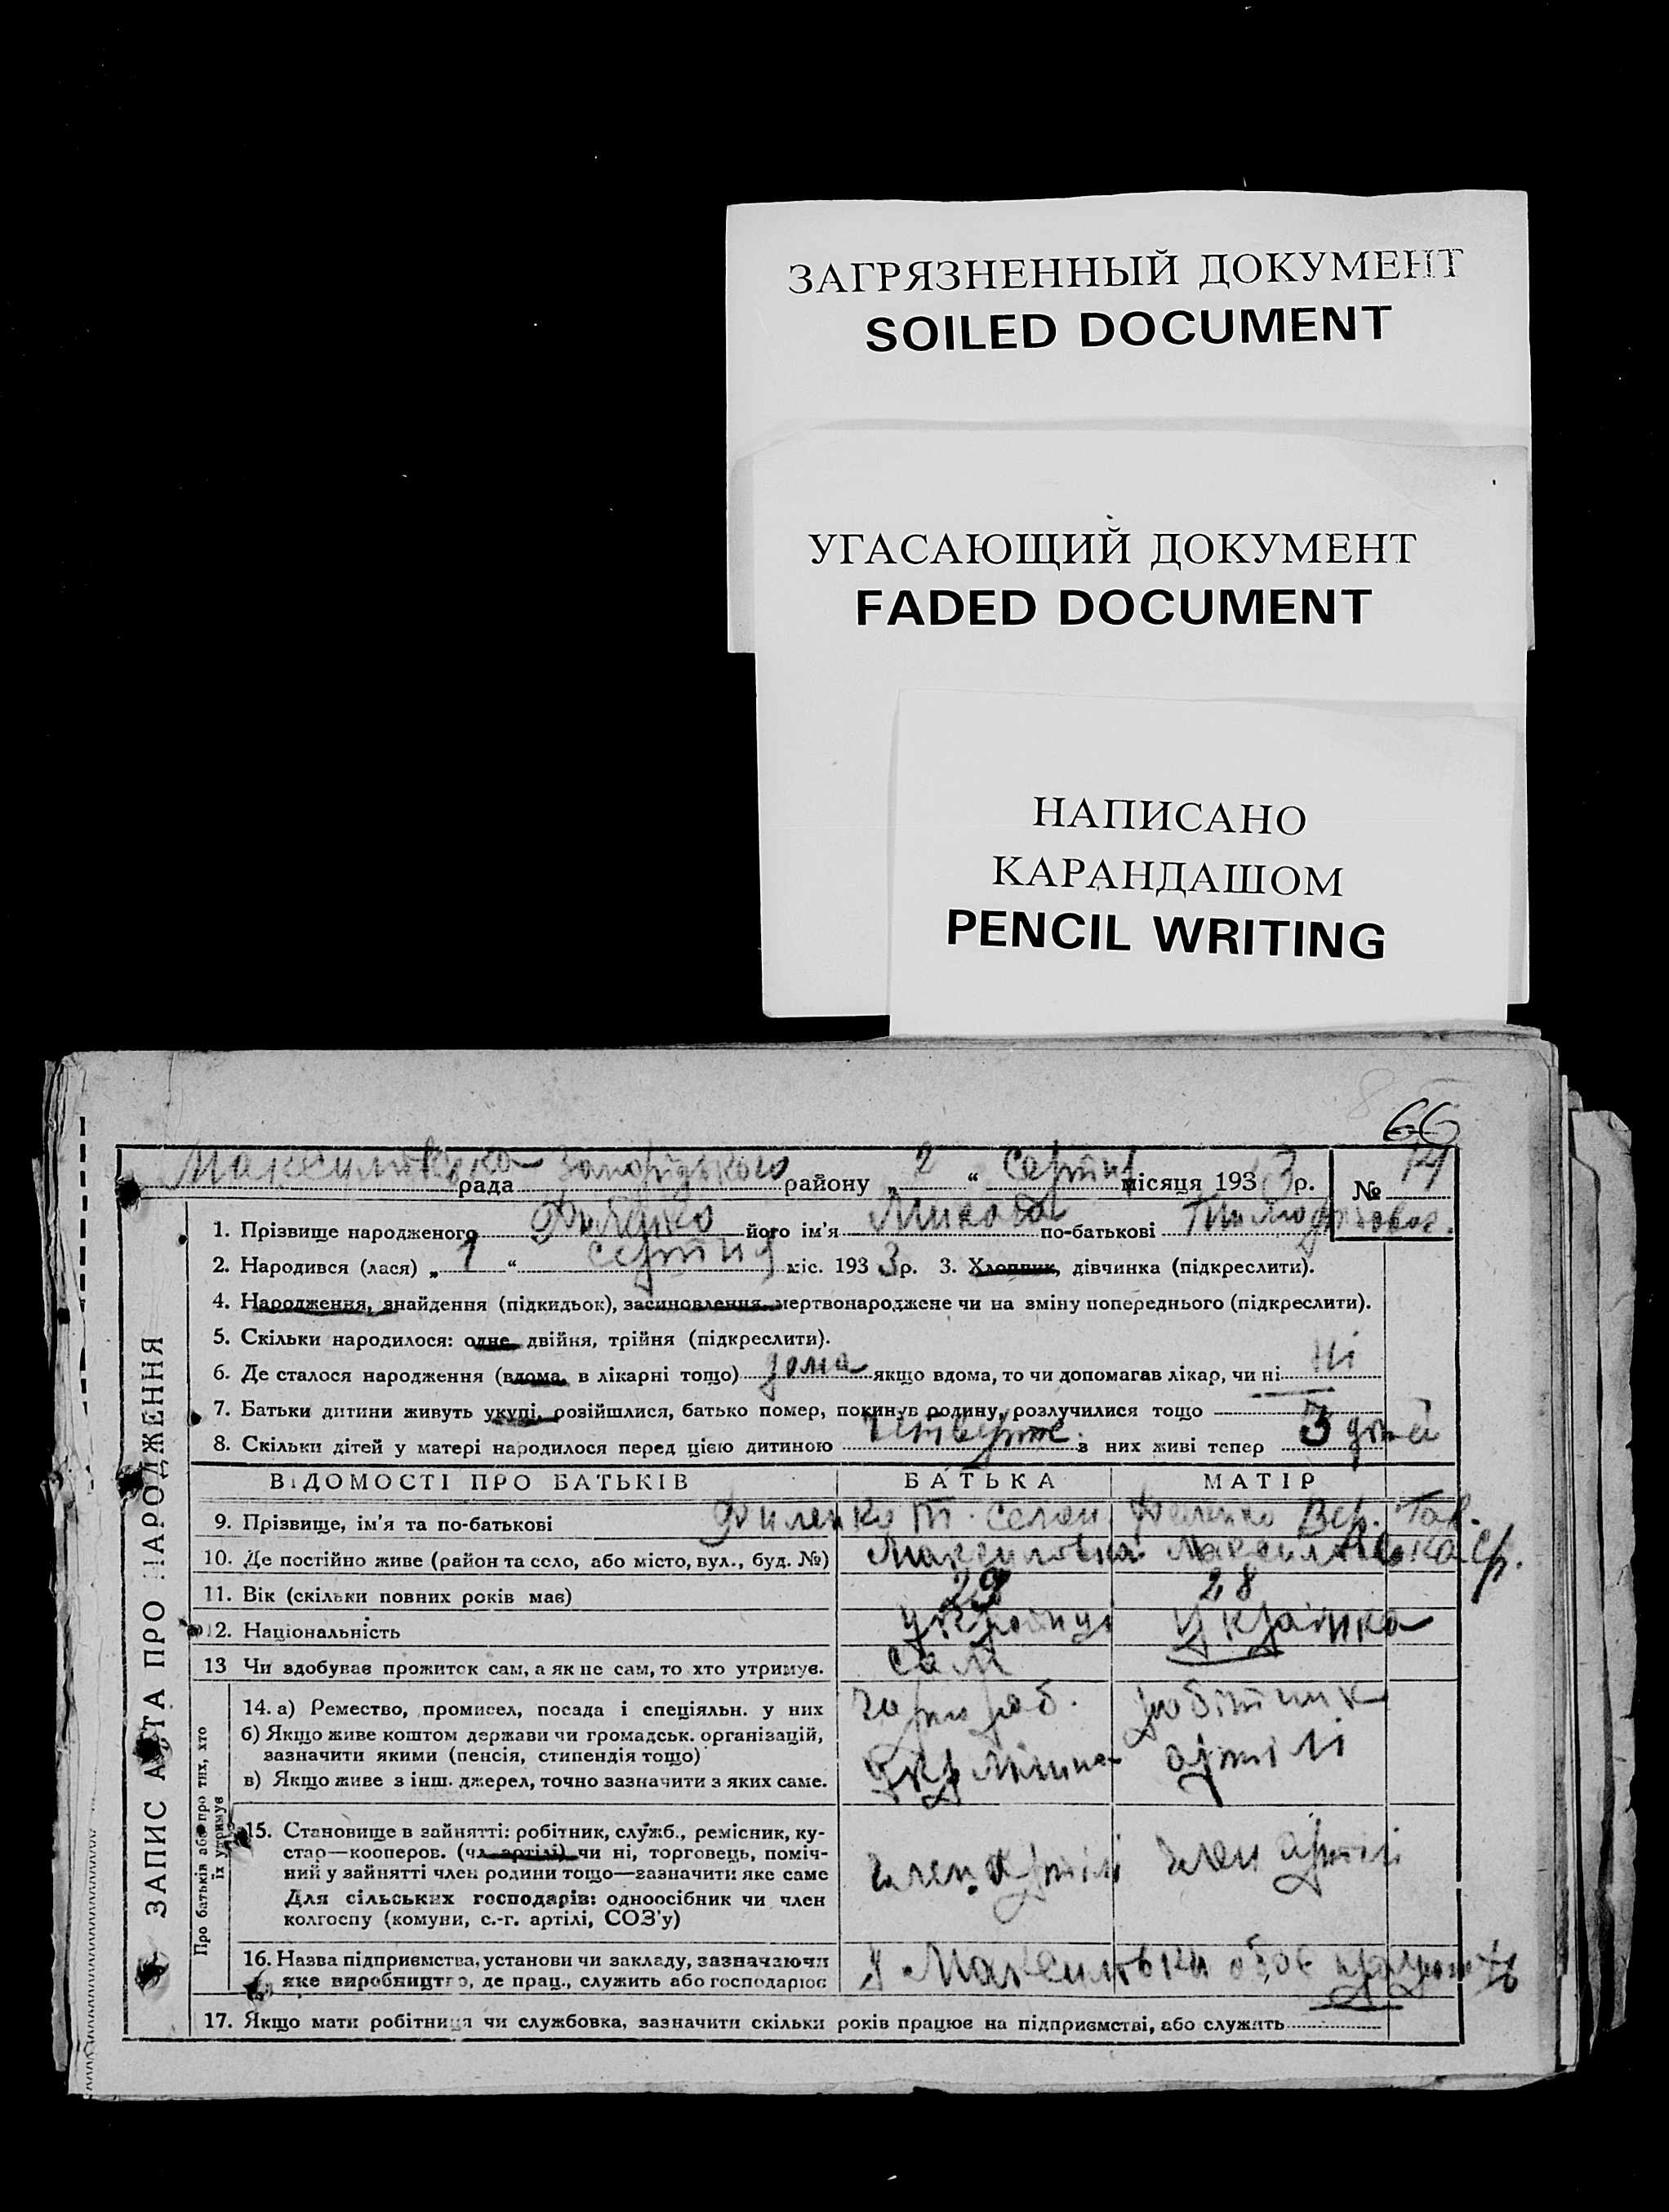 ЗАГРЯЗНЕННЫЙ ДОКУМЕНТ
SOILED DOCUMENT
УГАСАЮЩИЙ ДОКУМЕНТ
FADED DOCUMENT
НАПИСАНО
КАРАНДАШОМ
PENCIL WRITING
66
ЗАПИС АКТА ПРО НАРОДЖЕННЯ
рада Запорізького району „ 2 “ Серпня місяця 193 3 р. № 14
1. Прізвище народженого його ім'я Микола по-батькові
2. Народився (лася) „ 1 “ серпня міс. 193 3 р. 3. Хлопчик, дівчинка (підкреслити).
4. Народження, знайдення (підкидьок), засиновлення, мертвонароджене чи на зміну попереднього (підкреслити).
5. Скільки народилося: одне, двійня, трійня (підкреслити).
6. Де сталося народження (вдома, в лікарні тощо) дома якщо вдома, то чи допомагав лікар, чи ні ні
7. Батьки дитини живуть укупі, розійшлися, батько помер, покинув родину, розлучилися тощо
8. Скільки дітей у матері народилося перед цією дитиною четверте в них живі тепер 3
ВІДОМОСТІ ПРО БАТЬКІВ БАТЬКА МАТІР
9. Прізвище, ім'я та по-батькові Филенко Т.
10. Де постійно живе (район та село, або місто, вул., буд. №) Максиловка
11. Вік (скільки повних років має) 28
12. Національність Українка
13 Чи здобував прожиток сам, а як не сам, то хто утримує. сам
Про батьків або про тих, хто їх утримує
14. а) Ремество, промисел, посада і спеціяльн. у них робітник
б) Якщо живе коштом держави чи громадськ. організацій,
зазначити якими (пенсія, стипендія тощо) артілі
в) Якщо живе з інш. джерел, точно зазначити з яких саме.
15. Становище в зайнятті: робітник, служб., ремісник, ку-
стар—кооперов. (чл. артілі) чи ні, торговець, поміч-
ний у зайнятті член родини тощо—зазначити яке саме член артілі член артілі
Для сільських господарів: одноосібник чи член
колгоспу (комуни, с.-г. артілі, СОЗ'у)
16. Назва підприємства, установи чи закладу, зазначаючи
яке виробництво, де прац., служить або господарює обоє працюють
17. Якщо мати робітниця чи службовка, зазначити скільки років працює на підприємстві, або служить